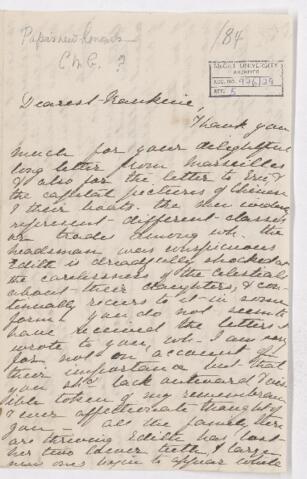 Papa's new honours
C.M.G. ?
/84
McGILL UNIVERSITY
ARCHIVES
ACC. NO. 926/29
REF. 5
Dearest Frankine,
Thank you
much for your delightful
long letter from Marseilles
& also for the letter to Eric &
the capital pictures of Chinese
& their boats. the men evidently
represent different classes
or trades among wh. the
headsman was conspicuous
Edith dreadfully shocked at
the carelessness of the Celestials
about their daughters, & con-
tinually recurs to it in some
form. you do not seem to
have received the letters I
wrote to you, wh. I am sorry
for not on account of
their importance but that
you shd. lack outward & visi-
ble token of my remembran
& ever affectionate thought of
you — all the family here
are thriving Edith has lost
her two lower teeth, & large
new ones begin to appear while